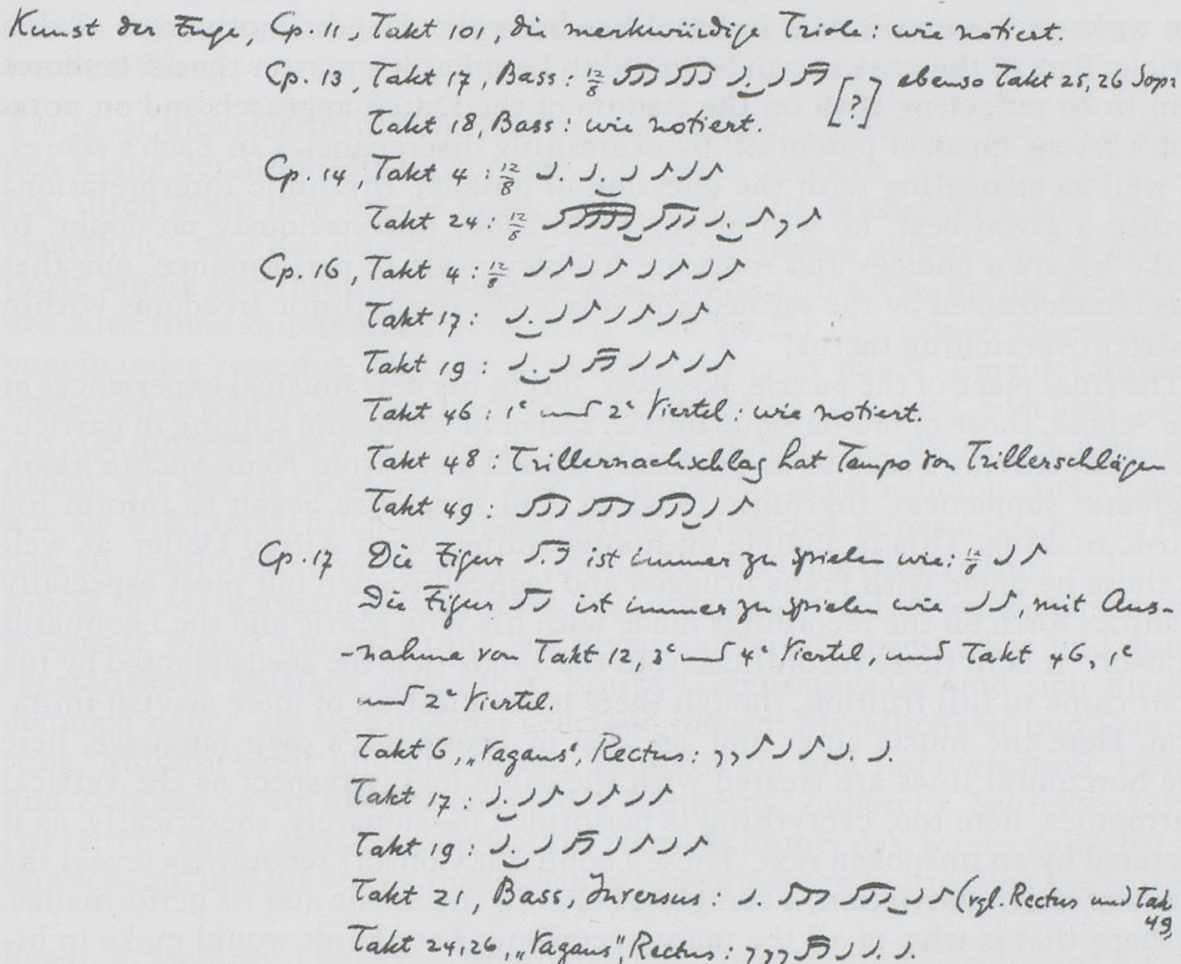 Kunst der Fuge, Cp. 11, Takt 101, die merkwürdige Triole: wie notiert.
Cp. 13, Takt 17, Bass: 12/8 [?] ebenso Takt 25, 26 Sopr
Takt 18, Bass: wie notiert.
Cp. 14, Takt 4: 12/8
Takt 24: 12/8
Cp. 16, Takt 4: 12/8
Takt 17:
Takt 19:
Takt 46: 1e und 2e Viertel: wie notiert.
Takt 48: Trillernachschlag hat Tempo von Trillerschlägen
Takt 49:
Cp. 17 Die Figur ist immer zu spielen wie: 12/8
Die Figur ist immer zu spielen wie, mit Aus-
-nahme von Takt 12, 3e und 4e Viertel, und Takt 46, 1e
und 2e Viertel.
Takt 6, „Vagans", Rectus:
Takt 17:
Takt 19:
Takt 21, Bass, Inversus: (vgl. Rectus und Takt
49)
Takt 24, 26, „Vagans", Rectus: